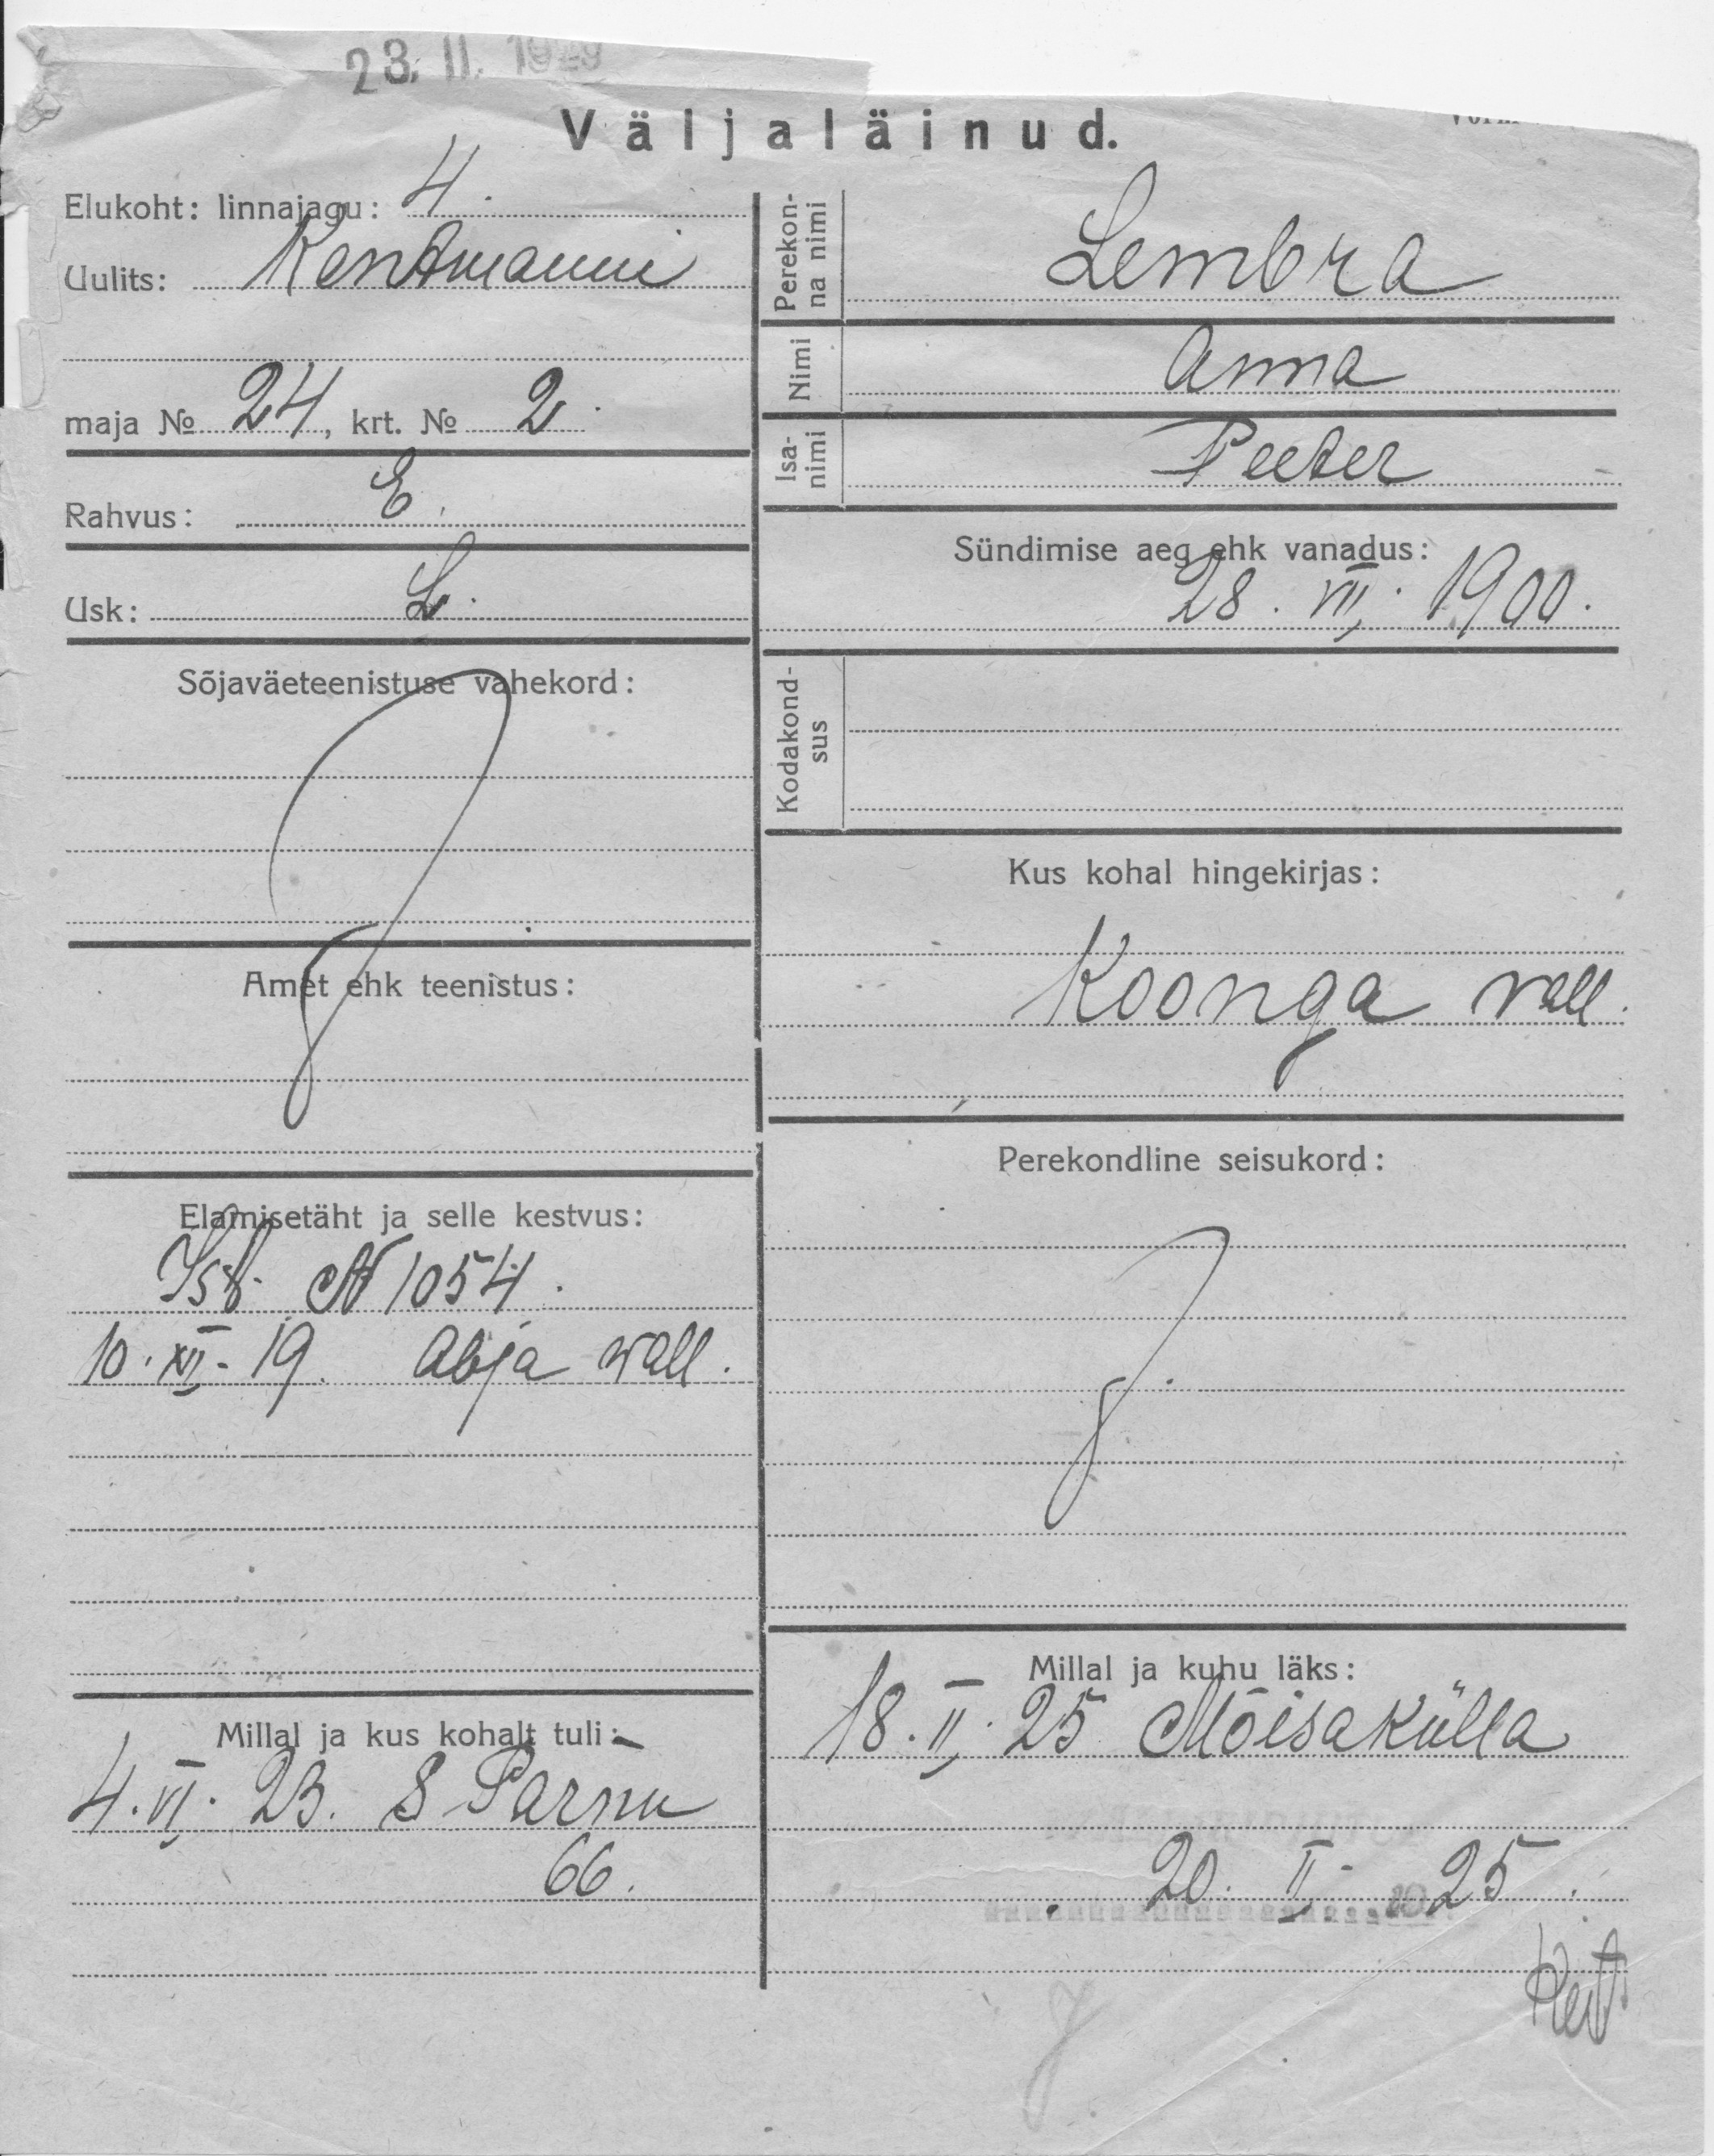 23. II. 19
Väljaläinud.
Elukoht: linnajagu: 4.
Uulits: Kentmanni
maja № 24, krt. № 2.
Rahvus: E.
Usk: L.
Sõjaväeteenistuse vahekord:
Amet ehk teenistus:
Elamisetäht ja selle kestvus:
Ist. № 1054.
10. XII. 19. Abja vall.
Millal ja kus kohalt tuli:
4. VI. 23. S Parnu
66.
Perekonna nimi
Lembra
Nimi
Anna
Isanimi
Peeter
Sündimise aeg ehk vanadus:
28. VII. 1900.
Kodakondsus
Kus kohal hingekirjas:
Koonga vall.
Perekondline seisukord:
Millal ja kuhu läks:
18. II. 25 Mõisakülla
20. II. 25.